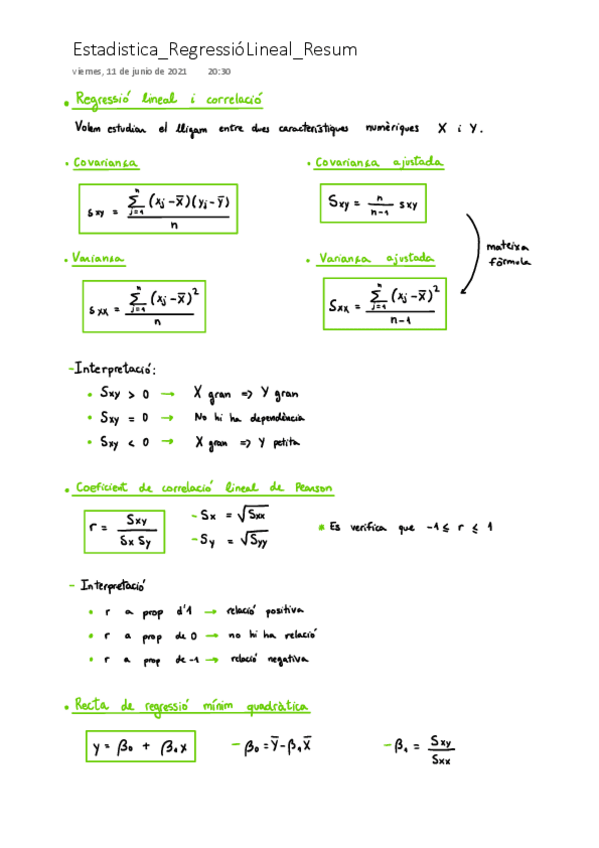 Estadistica_RegressióLineal_Resum
viernes, 11 de junio de 2021 20:30
• Regressió lineal i correlació
Volem estudiar el lligam entre dues característiques numèriques X i Y.
• Covariança
• Covariança ajustada
s_xy = Σ_{j=1}^{n} (x_j - x̄)(y_j - ȳ) / n
S_xy = n/(n-1) s_xy
mateixa
fórmula
• Variança
• Variança ajustada
s_xx = Σ_{j=1}^{n} (x_j - x̄)² / n
S_xx = Σ_{j=1}^{n} (x_j - x̄)² / n-1
- Interpretació:
• S_xy > 0 → X gran => Y gran
• S_xy = 0 → No hi ha dependència
• S_xy < 0 → X gran => Y petita
• Coeficient de correlació lineal de Pearson
r = S_xy / S_x S_y
- S_x = √S_xx
- S_y = √S_yy
* Es verifica que -1 ≤ r ≤ 1
- Interpretació
• r a prop d'1 → relació positiva
• r a prop de 0 → no hi ha relació
• r a prop de -1 → relació negativa
• Recta de regressió mínim quadràtica
y = β₀ + β₁x
- β₀ = Ȳ - β₁X̄
- β₁ = S_xy / S_xx